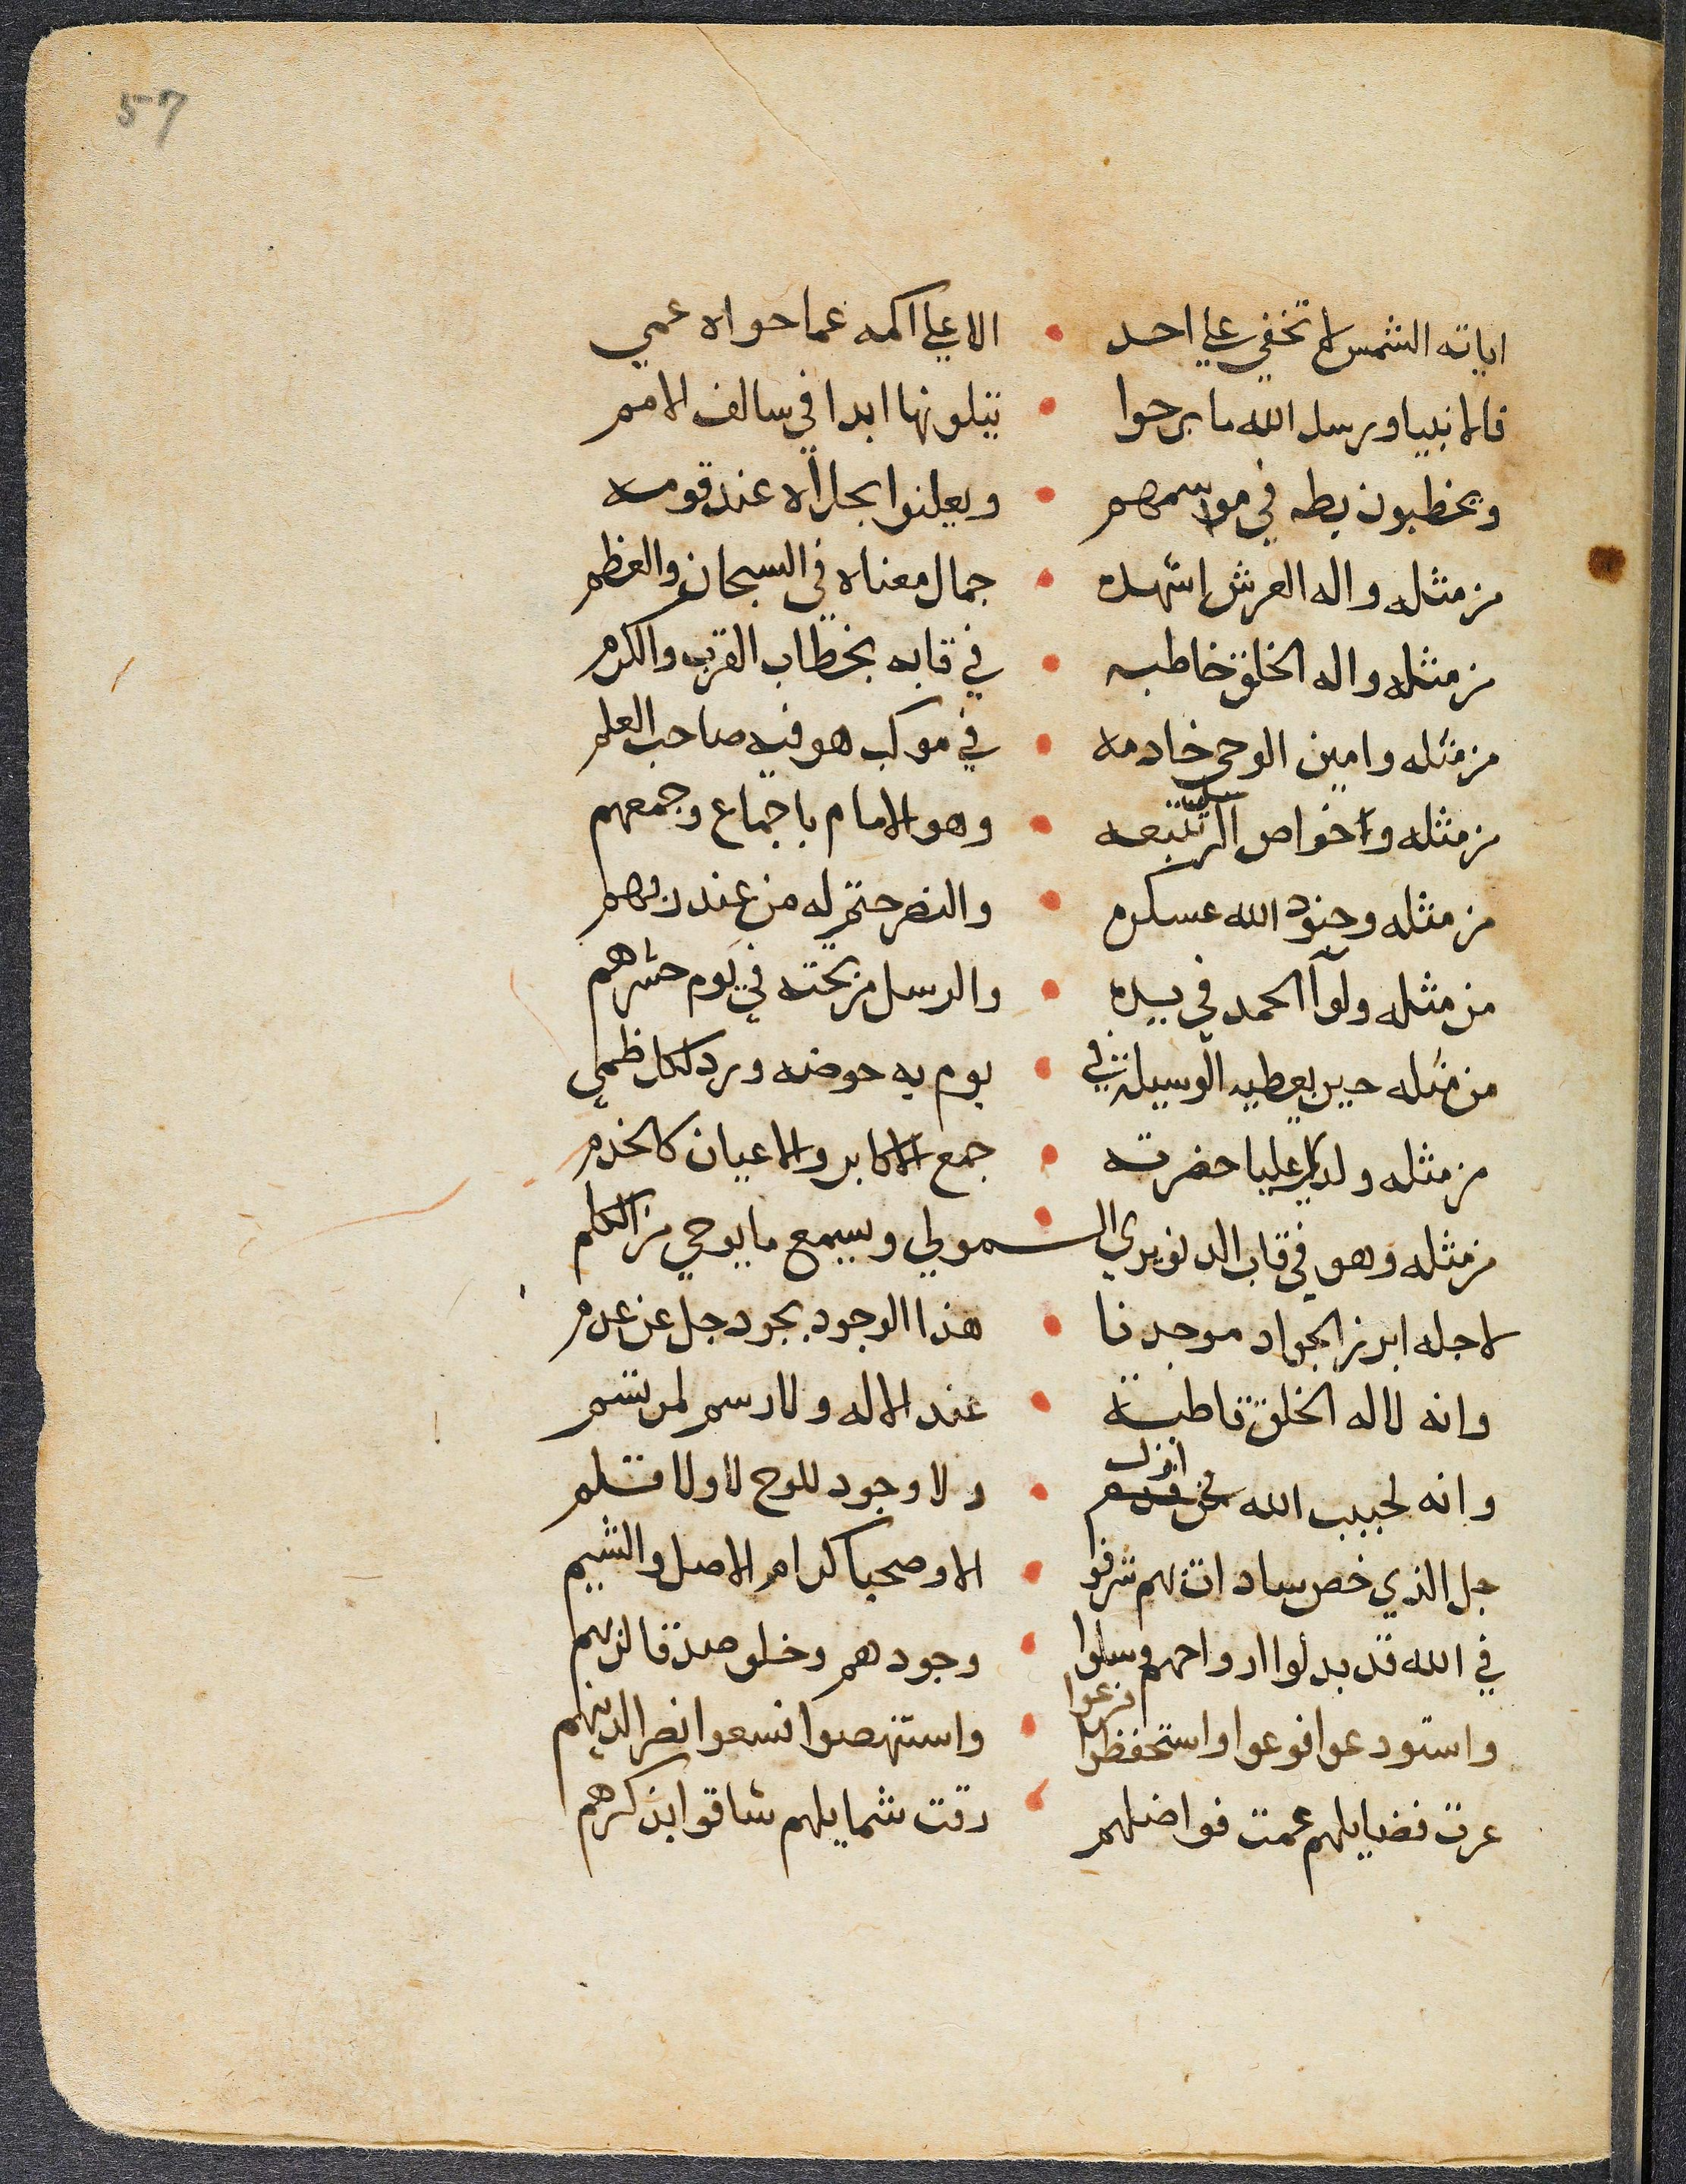 57
اياته الشمس لا تخفي علي احد • الا علي اكمه عما حواه عمي
فالانبيا ورسل الله ما برحوا • يتلونها ابدا في سالف الامم
ويخطبون بطه في مواسمهم • ويعلنوا بحلاه عند قومه
من مثله واله العرش اشهده • جمال معناه في السبحان والعظم
من مثله واله الخلق خاطبه • في قابه بخطاب القرب والكرم
من مثله وامين الوحي خادمه • في موكب هو فيه صاحب العلم
من مثله وخواص الرسل تتبعه • وهو الامام باجماع وجمعهم
من مثله وجنود الله عسكره • والنصر حتم له من عند ربهم
من مثله ولوآ الحمد في يده • والرسل من تحته في يوم حشرهم
من مثله حين يعطيه الوسيلة في • يوم به حوضه ورد لكل ظمي
من مثله ولدي عليا حضرته • جمع الاكابر والاعيان كالخدم
من مثله وهو في قاب الدنو يري ال • مولي ويسمع ما يوحي من الكلم
لاجله ابرز الجواد موجدنا • هذا الوجود بجود جل عن عدم
وانه لاله الخلق قاطبة • عند الاله ولا رسم لمرتسم
وانه لحبيب الله من ازل • ولا وجود للوح لا ولا قلم
جل الذي خص سادات بهم شرفوا • الا وصحبا كرام الاصل والشيم
في الله قد بدلوا ارواحهم وسلوا • وجودهم وخلو صدقا لربهم
واستودعوا فوعوا واستحفظوا فرعوا • واستنهضوا فسعوا نصرا لدينهم
عزت فضايلهم عمت فواضلهم • رقت شمايلهم شاقوا بذكرهم